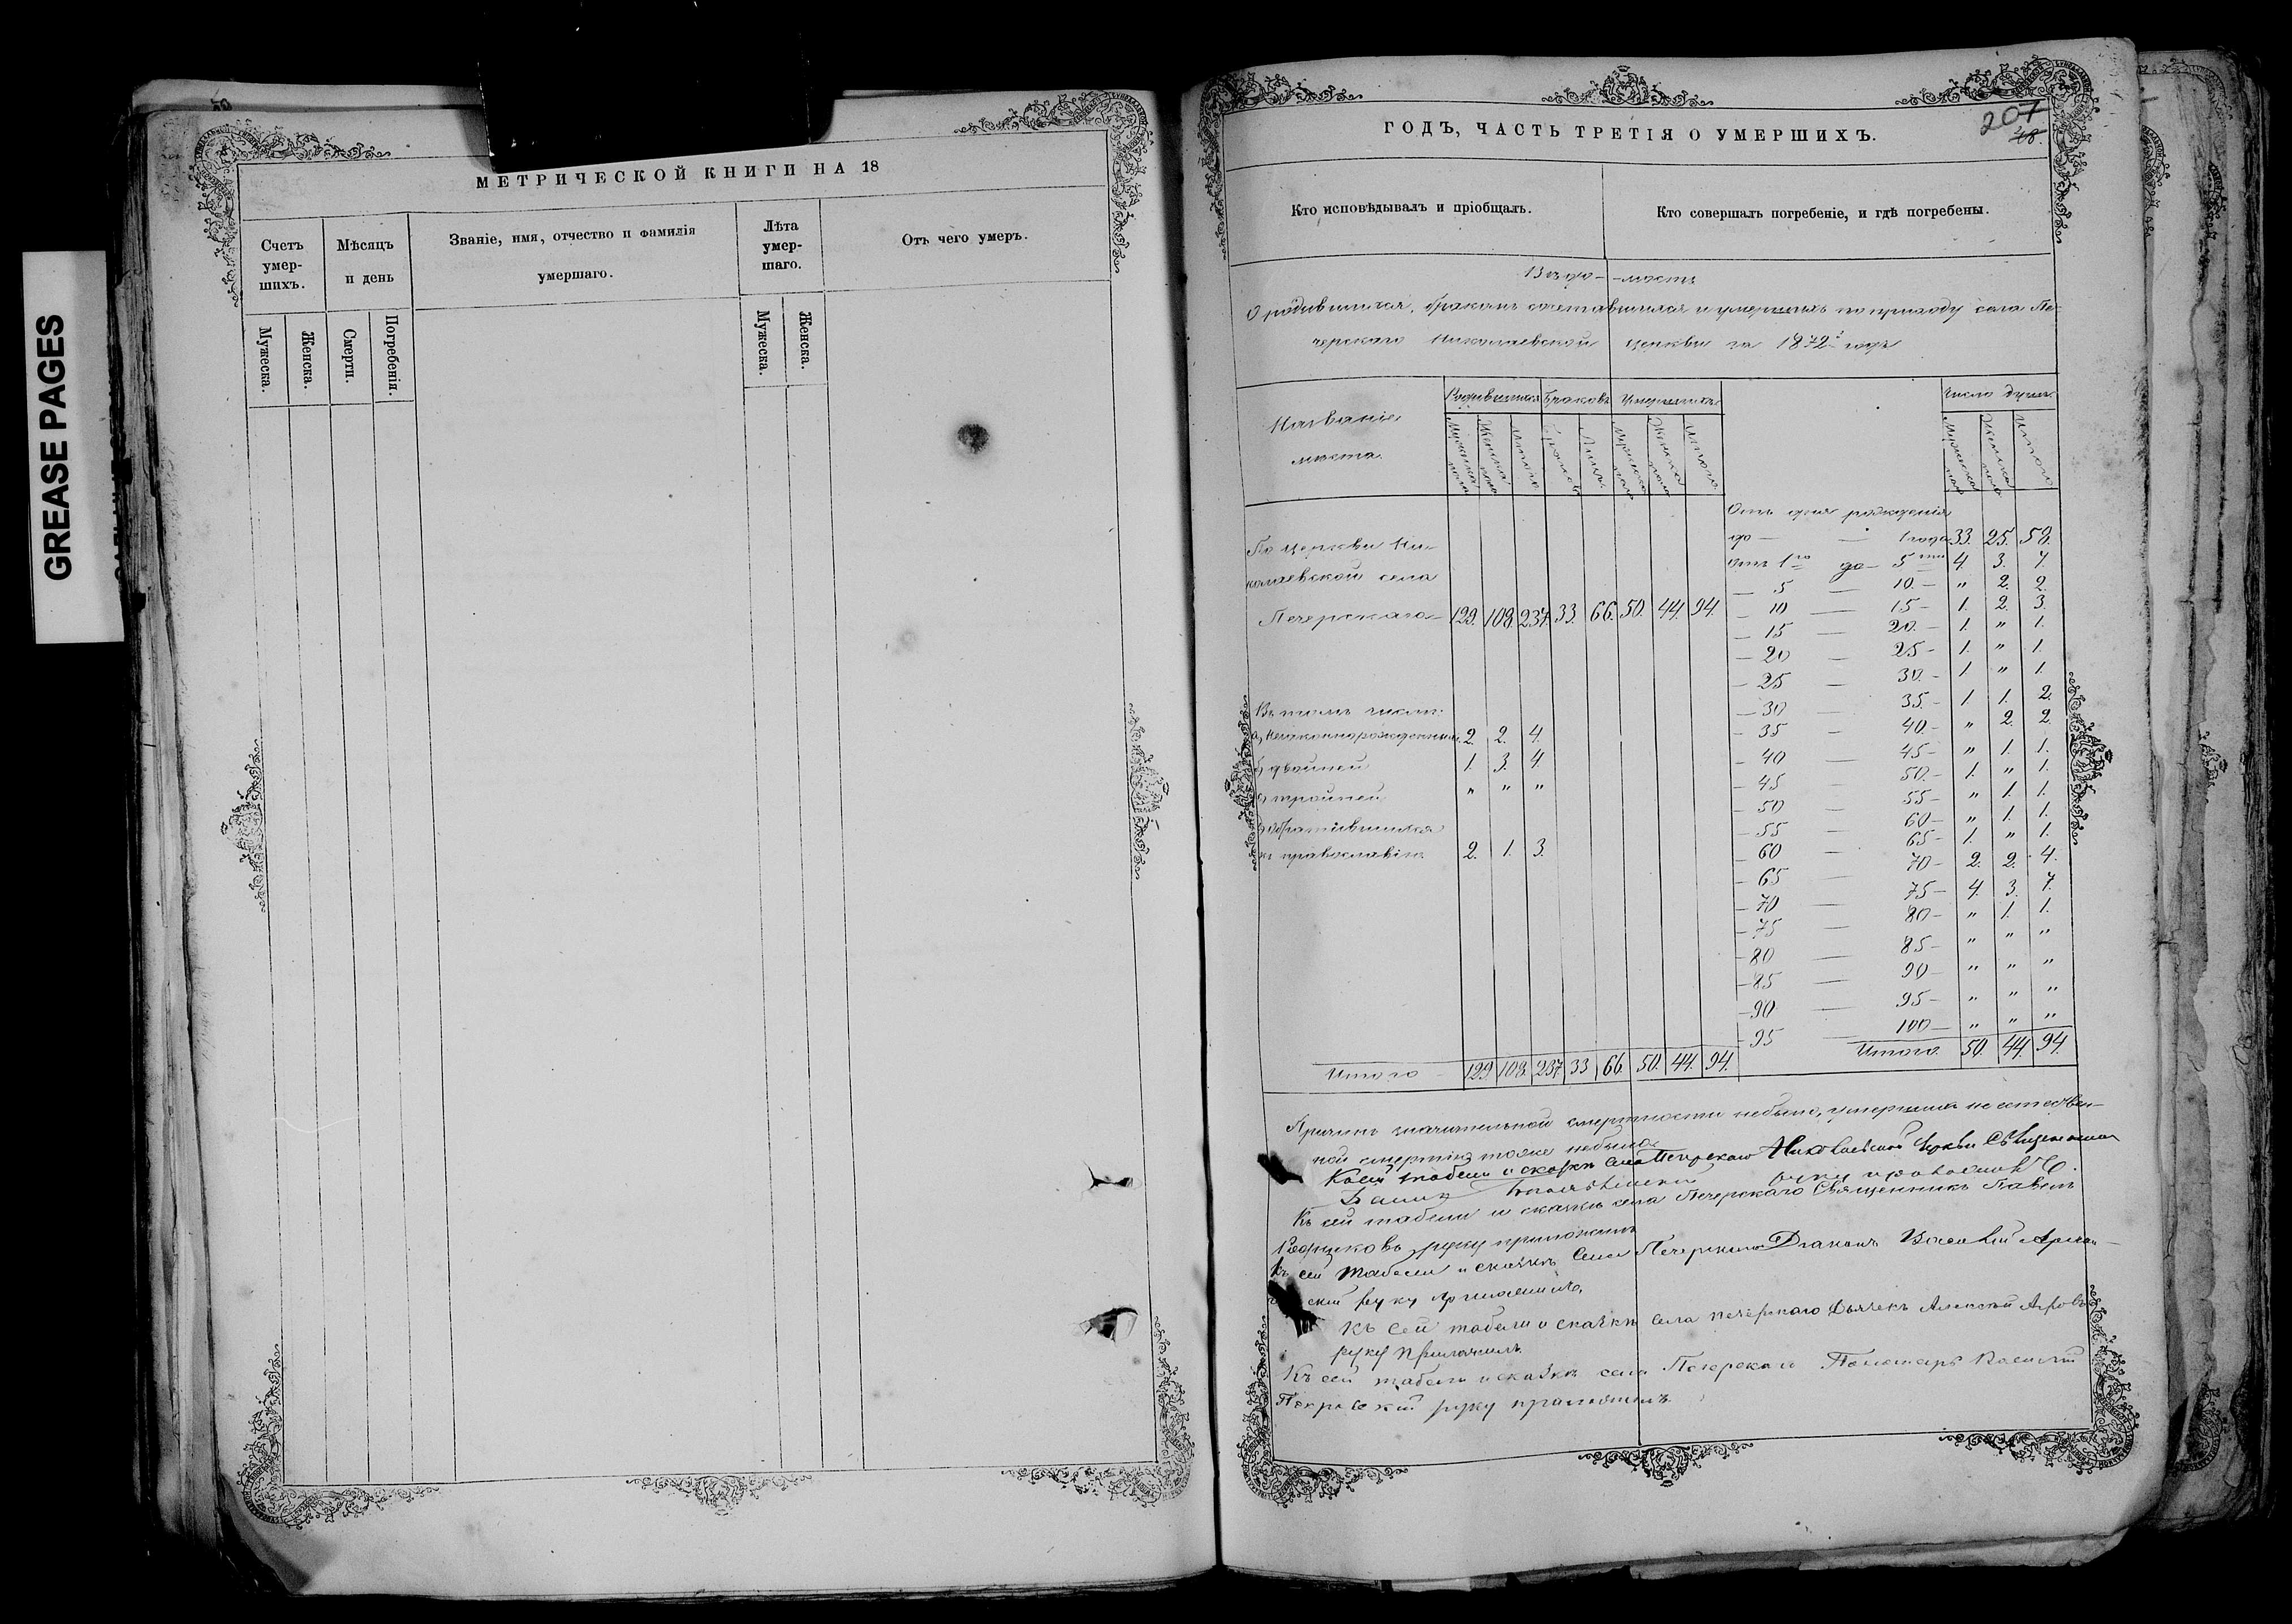 GREASE PAGES
МЕТРИЧЕСКОЙ КНИГИ НА 18
Счетъ умер-шихъ.
Мѣсяцъ и день
Званіе, имя, отчество и фамилія
умершаго.
Лѣта умер-шаго.
Отъ чего умеръ.
Мужеска.
Женска.
Смерти.
Погребенія.
Мужеска.
Женска.
207
48.
ГОДЪ, ЧАСТЬ ТРЕТІЯ О УМЕРШИХЪ.
Кто исповѣдывалъ и пріобщалъ.
Кто совершалъ погребеніе, и гдѣ погребены.
Вѣдо- -мость
О родившихся, бракомъ сочетавшихся и умершихъ по приходу села Пе-
черскаго Николаевской церкви за 1872й годъ
Названіе мѣста.
Родившихся Браковъ Умершихъ
Число душъ.
Мужеска пола Женска пола Итого Браковъ Лицъ Мужеска пола Женска пола Итого
Мужеска пола Женска пола Итого
Отъ дня рожденія
до — 1 года 33. 25. 58.
По церкви Ни-
отъ 1го до 5ти 4. 3. 7.
колаевской села
— 5 — 10. — " 2. 2.
Печерскаго — 129. 108. 237. 33. 66. 50. 44. 94.
— 10 — 15 — 1. 2. 3.
— 15 — 20. — 1. " 1.
— 20 — 25 — 1. " 1.
— 25 — 30. — 1 " 1.
— 30 — 35. — 1 1. 2.
Въ томъ числѣ:
— 35 — 40. — " 2. 2.
а, незаконнорожденныхъ 2. 2. 4.
— 40 — 45 — " 1. 1.
б, двойней 1. 3. 4.
— 45 — 50. — 1. " 1.
в, тройней " " "
— 50 — 55 — " 1. 1.
— 55 — 60 — " 1. 1.
г, обратившихся
— 60 — 65 — 1. " 1.
къ православію 2. 1. 3.
— 65 — 70 — 2. 2. 4.
— 70 — 75 — 4. 3. 7.
— 75 — 80 — " 1. 1.
— 80 — 85 — " " "
— 85 — 90 — " " "
— 90 — 95 — " " "
— 95 — 100 — " " "
Итого 50. 44. 94.
Итого 129 108. 237 33 66. 50. 44. 94.
Причинъ значительной смертности небыло, умершихъ не естествен-
ной смертію тоже небыло
табели и сказкѣ села Печерскаго Николаевской Церкви Священникъ
руку приложилъ.
Къ сей табели и сказкѣ села Печерскаго Священникъ Павелъ
руку приложилъ
Къ сей табели и сказкѣ Села Печерскаго Діаконъ Василій
руку приложилъ.
Къ сей табели и сказкѣ села печерскаго Дьячекъ Алексѣй
руку приложилъ
Къ сей табели и сказкѣ села Печерскаго Пономарь Василій
Покровскій руку приложилъ.